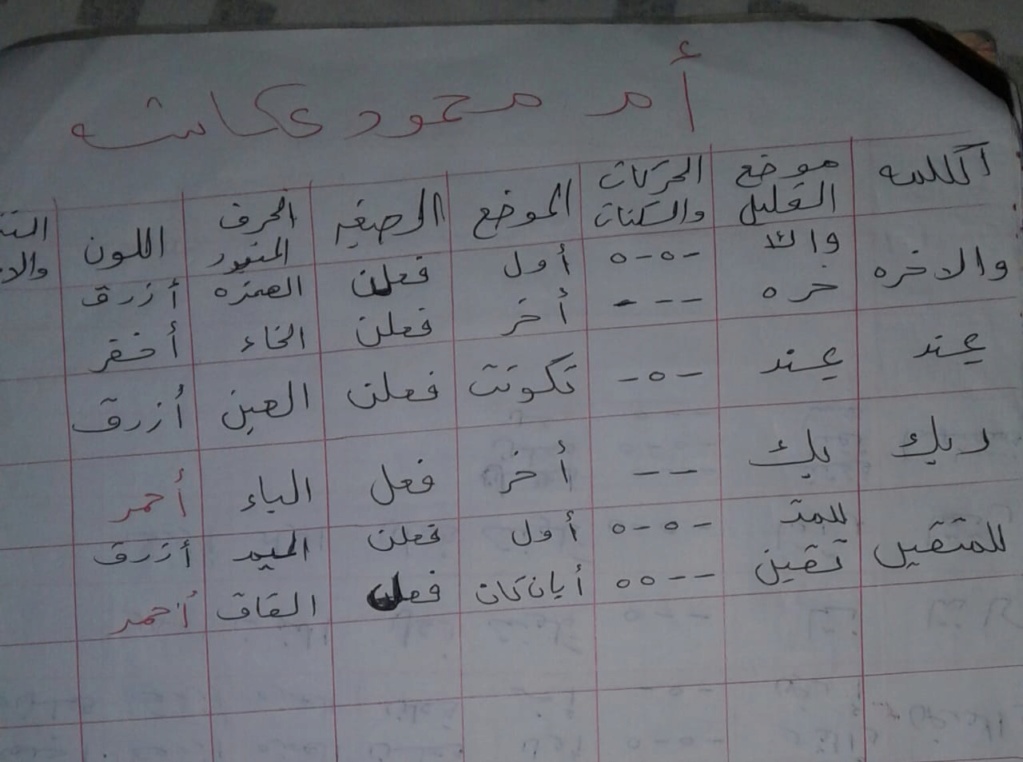 أم محمود عكاشه
الكلمه موضع القليل الحركات والسكنات الموضع الصغيه الحرف المنفور اللون
والاخره والا -٥-٥ أول فعلن الهمزه أزرق
خره --- أخر فعلن الخاء أخضر
عند عند -٥- تكونت فعلن العين أزرق
ربك بك -- أخر فعل الباء أحمر
للمتقين للمتـ -٥-٥ أول فعلن الميم أزرق
تقين --٥٥ أيان كان فعلن القاف أحمر